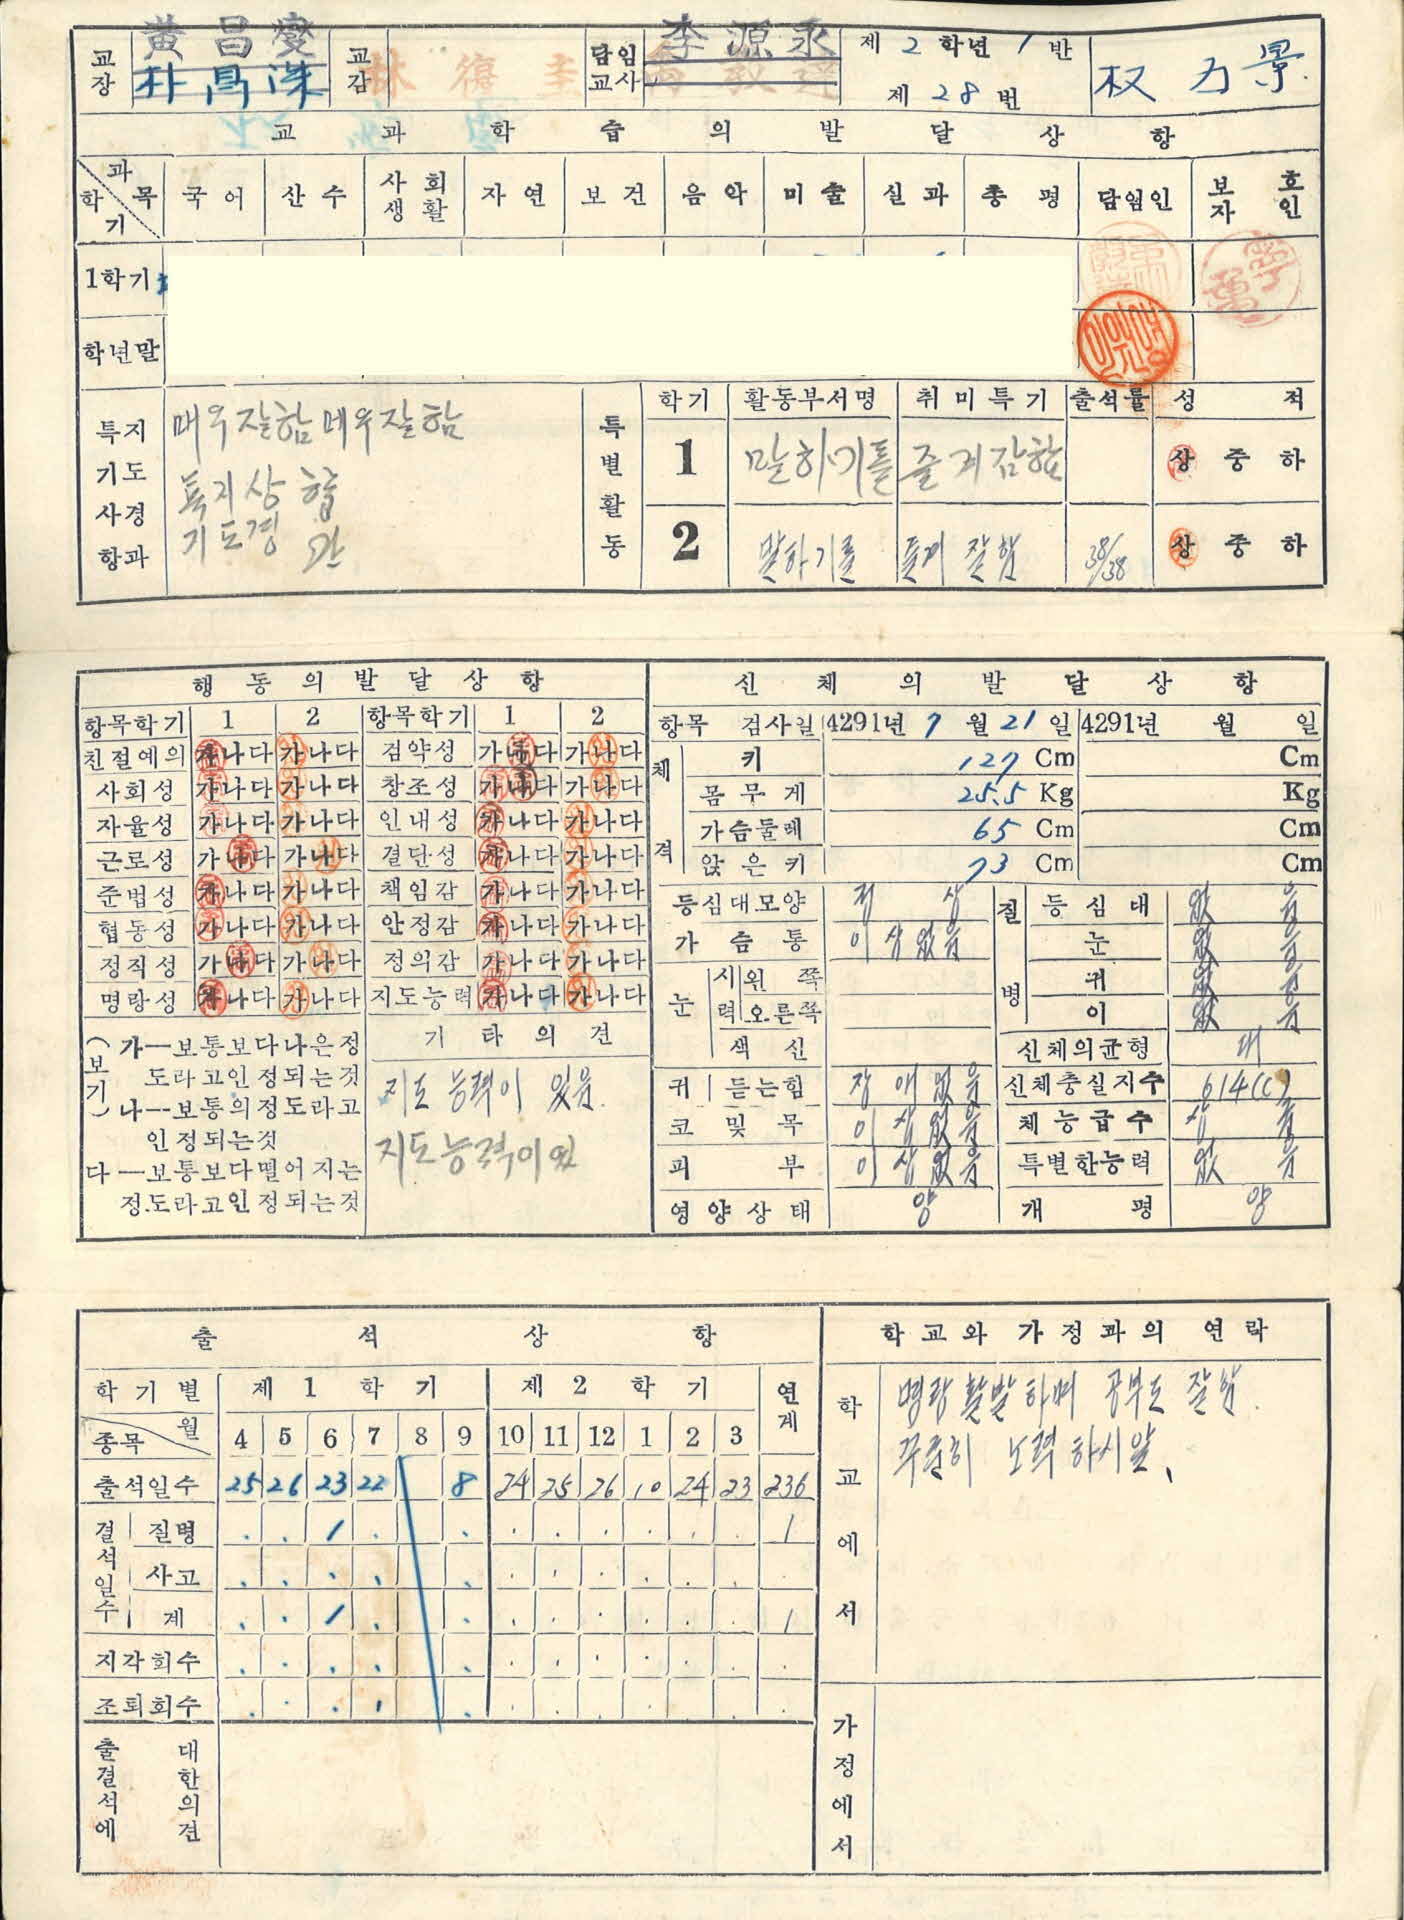 교장 黃昌燮 교감 담임교사 李源永 제 2 학년 1 반
朴 제 28 번
교 과 학 습 의 발 달 상 황
과목 학기 국어 산수 사회생활 자연 보건 음악 미술 실과 총평 담임인 보호자인
1학기
학년말
특기사항 지도경과
매우잘함 매우잘함
특별활동 학기 활동부서명 취미특기 출석률 성적
1 말하기를 즐겨잘함 상 중 하
2 말하기를 즐겨 잘함 38/38 상 중 하
행동의발달상황
항목학기 1 2 항목학기 1 2
친절예의 가나다 가나다 검약성 가나다 가나다
사회성 가나다 가나다 창조성 가나다 가나다
자율성 가나다 가나다 인내성 가나다 가나다
근로성 가나다 가나다 결단성 가나다 가나다
준법성 가나다 가나다 책임감 가나다 가나다
협동성 가나다 가나다 안정감 가나다 가나다
정직성 가나다 가나다 정의감 가나다 가나다
명랑성 가나다 가나다 지도능력 가나다 가나다
(보기) 가—보통보다나은정
도라고인정되는것
나—보통의정도라고
인정되는것
다—보통보다떨어지는
정도라고인정되는것
기타의견
지도 능력이 있음.
지도능력이있
신체의발달상황
항목 검사일 4291년 7 월 21 일 4291년 월 일
체격 키 127 Cm Cm
몸무게 25.5 Kg Kg
가슴둘레 65 Cm Cm
앉은키 73 Cm Cm
등심대모양 정상 질병 등심대 없음
가슴통 이상없음 눈 없음
눈 시력 왼쪽 귀 없음
오른쪽 이 없음
색신 신체의균형 대
귀 듣는힘 장애없음 신체충실지수 614(C)
코및목 이상없음 체능급수
피부 이상없음 특별한능력 없음
영양상태 양 개평 양
출석상황
학기별 제1학기 제2학기 연계
종목 월 4 5 6 7 8 9 10 11 12 1 2 3
출석일수 25 26 23 22 8 24 25 26 10 24 23 236
결석일수 질병 1 1
사고
계 1 1
지각회수
조퇴회수
출결석에 대한의견
학교와 가정과의 연락
학교에서
명랑 활발하며 공부도 잘함.
꾸준히 노력 하시앞.
가정에서